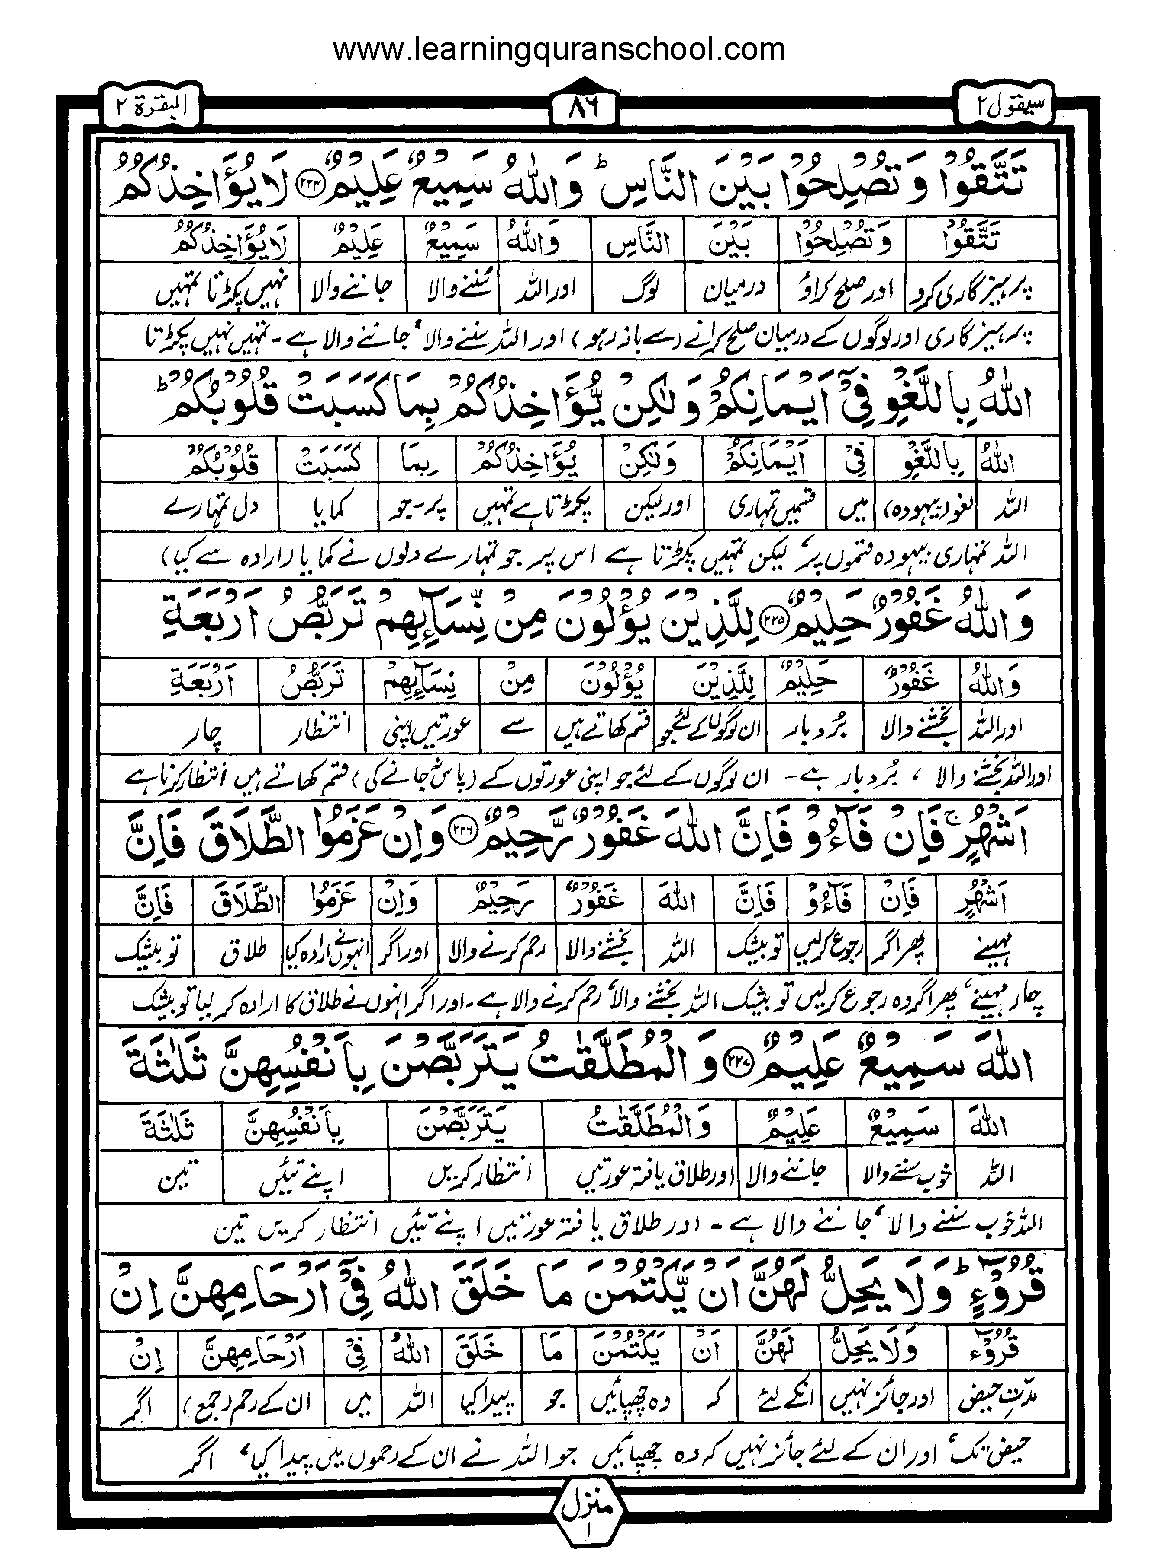 www.learningquranschool.com
سيقول ٢ ٨٦ البقرة ٢
تَتَّقُوْا وَتُصْلِحُوْا بَيْنَ النَّاسِ ؕ وَاللّٰهُ سَمِيْعٌ عَلِيْمٌ ﴿٢٢٤﴾ لَا يُؤَاخِذُكُمُ
تَتَّقُوْا وَتُصْلِحُوْا بَيْنَ النَّاسِ وَاللّٰهُ سَمِيْعٌ عَلِيْمٌ لَا يُؤَاخِذُكُمُ
پرہیزگاری کرو اور صلح کراؤ درمیان لوگ اور اللہ سُننے والا جاننے والا نہیں پکڑتا تمہیں
پرہیزگاری اور لوگوں کے درمیان صلح کرانے (سے باز رہو) اور اللہ سننے والا ' جاننے والا ہے - تمہیں نہیں پکڑتا
اللّٰهُ بِاللَّغْوِ فِيْٓ اَيْمَانِكُمْ وَلٰكِنْ يُّؤَاخِذُكُمْ بِمَا كَسَبَتْ قُلُوْبُكُمْ ؕ
اللّٰهُ بِاللَّغْوِ فِيْٓ اَيْمَانِكُمْ وَلٰكِنْ يُؤَاخِذُكُمْ بِمَا كَسَبَتْ قُلُوْبُكُمْ
اللہ لغو (بیہودہ) میں قسمیں تمہاری اور لیکن پکڑتا ہے تمہیں پر - جو کمایا دل تمہارے
اللہ تمہاری بیہودہ قسموں پر ' لیکن تمہیں پکڑتا ہے اس پر جو تمہارے دلوں نے کمایا (ارادہ سے کیا)
وَاللّٰهُ غَفُوْرٌ حَلِيْمٌ ﴿٢٢٥﴾ لِلَّذِيْنَ يُؤْلُوْنَ مِنْ نِّسَآئِهِمْ تَرَبُّصُ اَرْبَعَةِ
وَاللّٰهُ غَفُوْرٌ حَلِيْمٌ لِلَّذِيْنَ يُؤْلُوْنَ مِنْ نِسَآئِهِمْ تَرَبُّصُ اَرْبَعَةِ
اور اللہ بخشنے والا بُردبار ان لوگوں کے لئے جو قسم کھاتے ہیں سے عورتیں اپنی انتظار چار
اور اللہ بخشنے والا ، بُردبار ہے - ان لوگوں کے لئے جو اپنی عورتوں کے (پاس نہ جانے کی) قسم کھاتے ہیں انتظار کرنا ہے
اَشْهُرٍ ۚ فَاِنْ فَآءُوْ فَاِنَّ اللّٰهَ غَفُوْرٌ رَّحِيْمٌ ﴿٢٢٦﴾ وَاِنْ عَزَمُوا الطَّلَاقَ فَاِنَّ
اَشْهُرٍ فَاِنْ فَآءُوْ فَاِنَّ اللّٰهَ غَفُوْرٌ رَحِيْمٌ وَاِنْ عَزَمُوا الطَّلَاقَ فَاِنَّ
مہینے پھر اگر رجوع کرلیں تو بیشک اللہ بخشنے والا رحم کرنے والا اور اگر انہوں نے ارادہ کیا طلاق تو بیشک
چار مہینے ' پھر اگر وہ رجوع کرلیں تو بیشک اللہ بخشنے والا ' رحم کرنے والا ہے - اور اگر انہوں نے طلاق کا ارادہ کر لیا تو بیشک
اللّٰهَ سَمِيْعٌ عَلِيْمٌ ﴿٢٢٧﴾ وَالْمُطَلَّقٰتُ يَتَرَبَّصْنَ بِاَنْفُسِهِنَّ ثَلٰثَةَ
اللّٰهَ سَمِيْعٌ عَلِيْمٌ وَالْمُطَلَّقٰتُ يَتَرَبَّصْنَ بِاَنْفُسِهِنَّ ثَلٰثَةَ
اللہ خوب سننے والا جاننے والا اور طلاق یافتہ عورتیں انتظار کریں اپنے تئیں تین
اللہ خوب سننے والا ' جاننے والا ہے - اور طلاق یافتہ عورتیں اپنے تئیں انتظار کریں تین
قُرُوْٓءٍ ؕ وَلَا يَحِلُّ لَهُنَّ اَنْ يَّكْتُمْنَ مَا خَلَقَ اللّٰهُ فِيْٓ اَرْحَامِهِنَّ اِنْ
قُرُوْٓءٍ وَلَا يَحِلُّ لَهُنَّ اَنْ يَكْتُمْنَ مَا خَلَقَ اللّٰهُ فِيْٓ اَرْحَامِهِنَّ اِنْ
مدّتِ حیض اور جائز نہیں انکے لئے کہ وہ چھپائیں جو پیدا کیا اللہ میں ان کے رحم (جمع) اگر
حیض تک ' اور ان کے لئے جائز نہیں کہ وہ چھپائیں جو اللہ نے ان کے رحموں میں پیدا کیا ' اگر
منزل ١